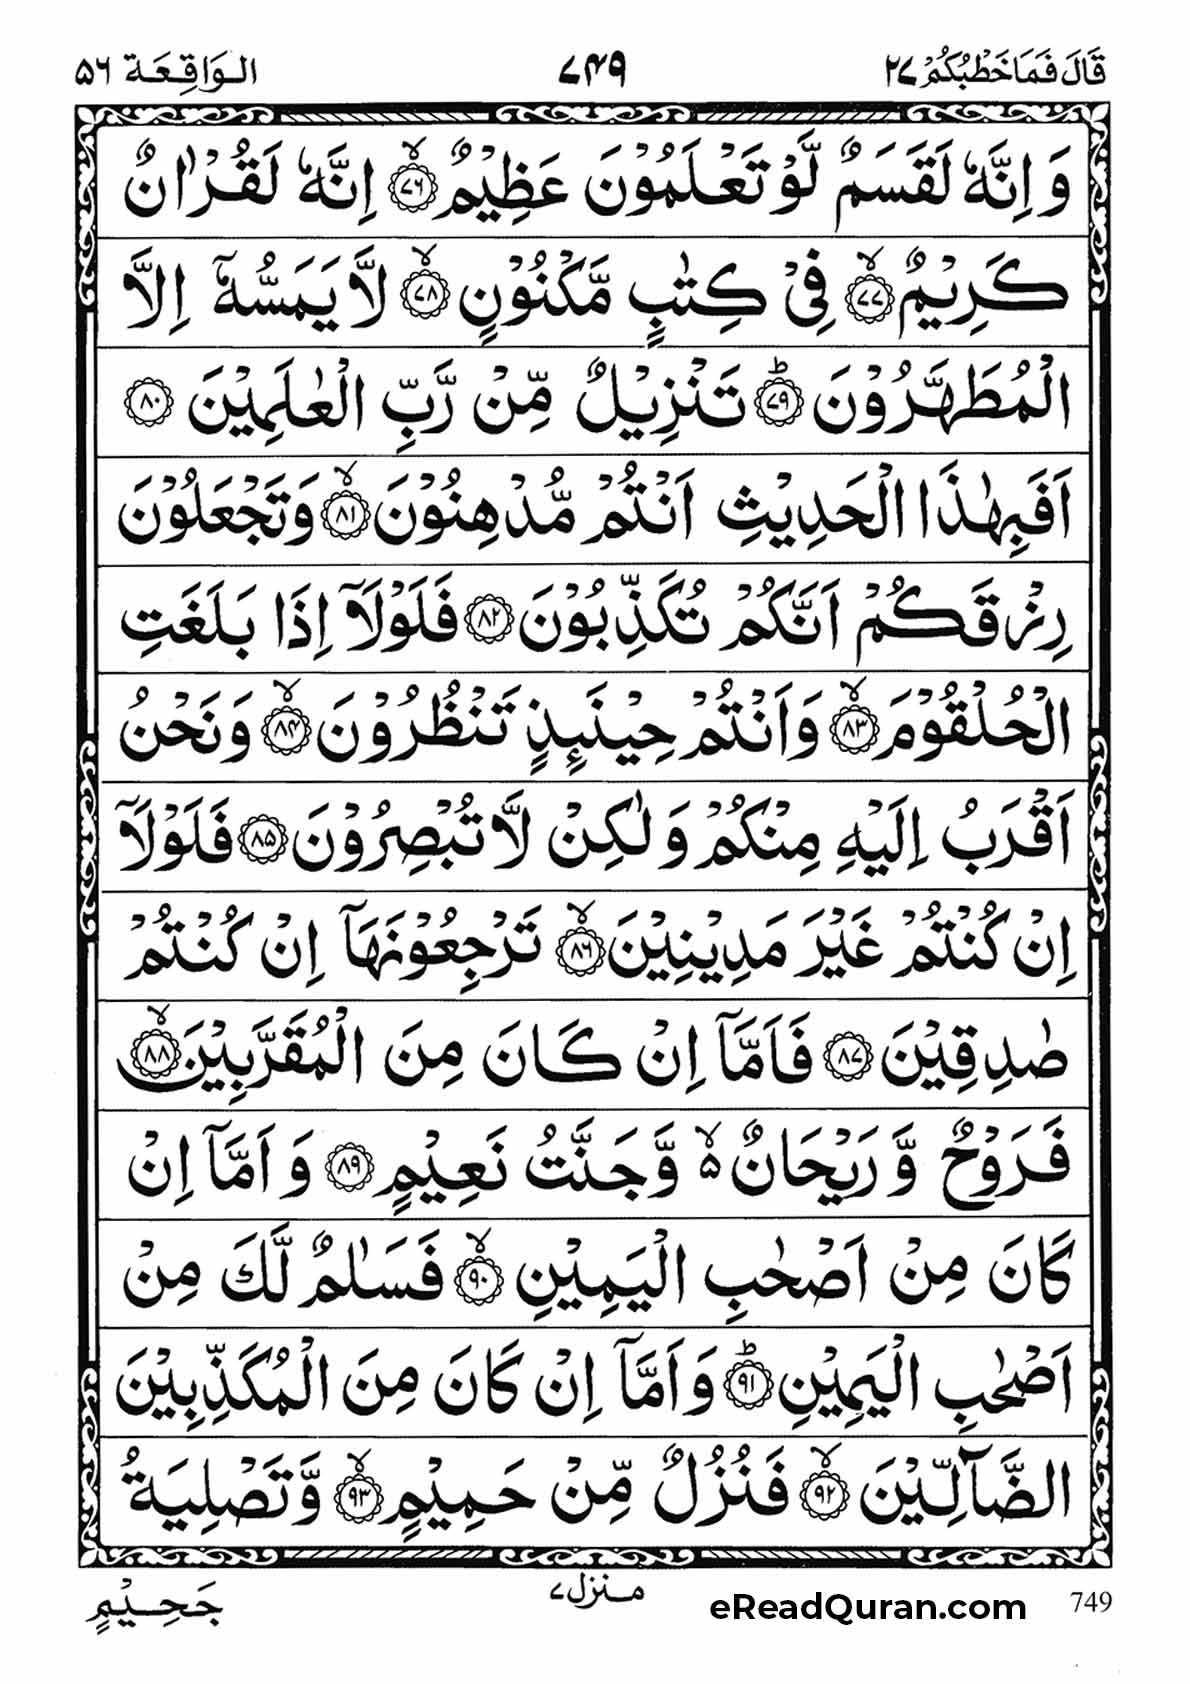 قَالَ فَمَا خَطْبُكُمْ ٢٧ ٧٤٩ الواقعة ٥٦
وَاِنَّهٗ لَقَسَمٌ لَّوْ تَعْلَمُوْنَ عَظِيْمٌ ۙ﴿٧٦﴾ اِنَّهٗ لَقُرْاٰنٌ
كَرِيْمٌ ۙ﴿٧٧﴾ فِيْ كِتٰبٍ مَّكْنُوْنٍ ۙ﴿٧٨﴾ لَّا يَمَسُّهٗٓ اِلَّا
الْمُطَهَّرُوْنَ ؕ﴿٧٩﴾ تَنْزِيْلٌ مِّنْ رَّبِّ الْعٰلَمِيْنَ ﴿٨٠﴾
اَفَبِهٰذَا الْحَدِيْثِ اَنْتُمْ مُّدْهِنُوْنَ ۙ﴿٨١﴾ وَتَجْعَلُوْنَ
رِزْقَكُمْ اَنَّكُمْ تُكَذِّبُوْنَ ﴿٨٢﴾ فَلَوْلَاۤ اِذَا بَلَغَتِ
الْحُلْقُوْمَ ۙ﴿٨٣﴾ وَاَنْتُمْ حِيْنَىِٕذٍ تَنْظُرُوْنَ ۙ﴿٨٤﴾ وَنَحْنُ
اَقْرَبُ اِلَيْهِ مِنْكُمْ وَلٰكِنْ لَّا تُبْصِرُوْنَ ﴿٨٥﴾ فَلَوْلَاۤ
اِنْ كُنْتُمْ غَيْرَ مَدِيْنِيْنَ ۙ﴿٨٦﴾ تَرْجِعُوْنَهَاۤ اِنْ كُنْتُمْ
صٰدِقِيْنَ ﴿٨٧﴾ فَاَمَّاۤ اِنْ كَانَ مِنَ الْمُقَرَّبِيْنَ ۙ﴿٨٨﴾
فَرَوْحٌ وَّرَيْحَانٌ ۙ۵ وَّجَنَّتُ نَعِيْمٍ ﴿٨٩﴾ وَاَمَّاۤ اِنْ
كَانَ مِنْ اَصْحٰبِ الْيَمِيْنِ ۙ﴿٩٠﴾ فَسَلٰمٌ لَّكَ مِنْ
اَصْحٰبِ الْيَمِيْنِ ؕ﴿٩١﴾ وَاَمَّاۤ اِنْ كَانَ مِنَ الْمُكَذِّبِيْنَ
الضَّآلِّيْنَ ۙ﴿٩٢﴾ فَنُزُلٌ مِّنْ حَمِيْمٍ ۙ﴿٩٣﴾ وَّتَصْلِيَةُ
749 eReadQuran.com منزل ٧ جَحِيْمٍ